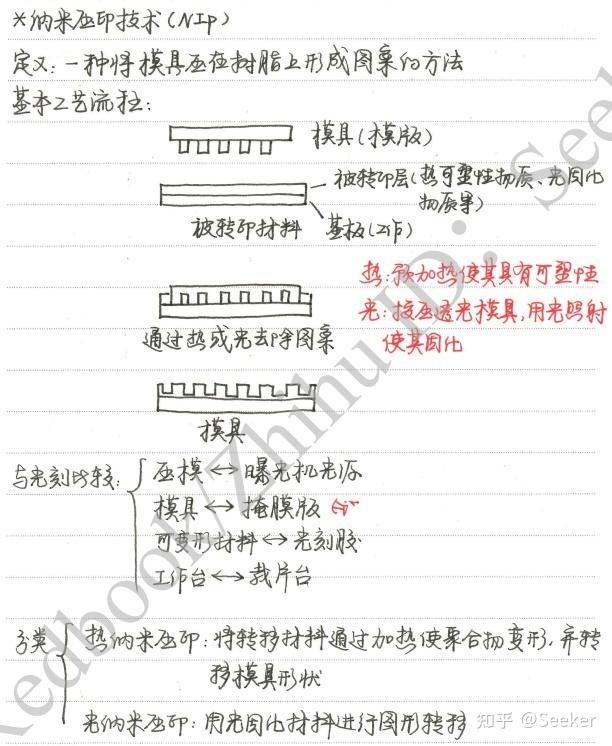 *纳米压印技术(NIP)
定义:一种将模具压在树脂上形成图案的方法
基本工艺流程:
模具(模版)
被转印层(热可塑性物质、光固化
物质等)
被转印材料 基板(工作)
热:预加热使其具有可塑性
光:按压透光模具,用光照射
使其固化
通过热或光去除图案
模具
与光刻比较:
压模↔曝光机光源
模具↔掩膜版
可变形材料↔光刻胶
工作台↔载片台
分类
热纳米压印:将转移材料通过加热使聚合物变形,并转
移模具形状
光纳米压印:用光固化材料进行图形转移
知乎 @Seeker
Redbook/Zhihu ID: Seek